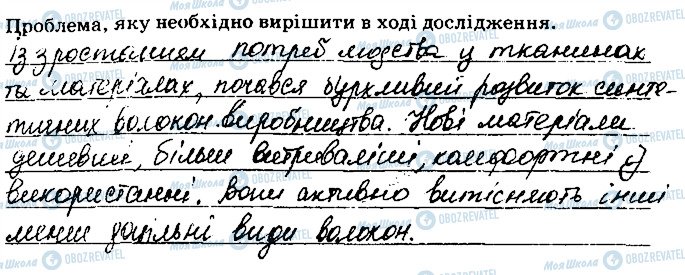 Проблема, яку необхідно вирішити в ході дослідження.
Із зростанням потреб людства у тканинах
та матеріалах, почався бурхливий розвиток синте-
тичних волокон виробництва. Нові матеріали
дешевші, більш витриваліші, комфортні у
використанні. Вони активно витісняють інші
менш доцільні види волокон.